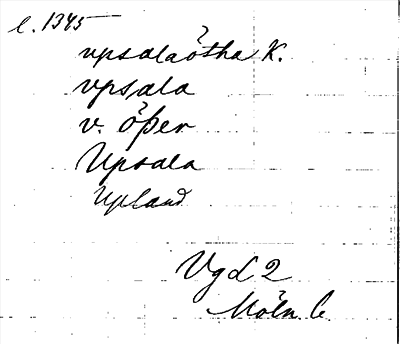 c. 1345
upsalaötha K.
vpsala
v. öþer
Upsala
Upland
Vgd 2
Möln. C.